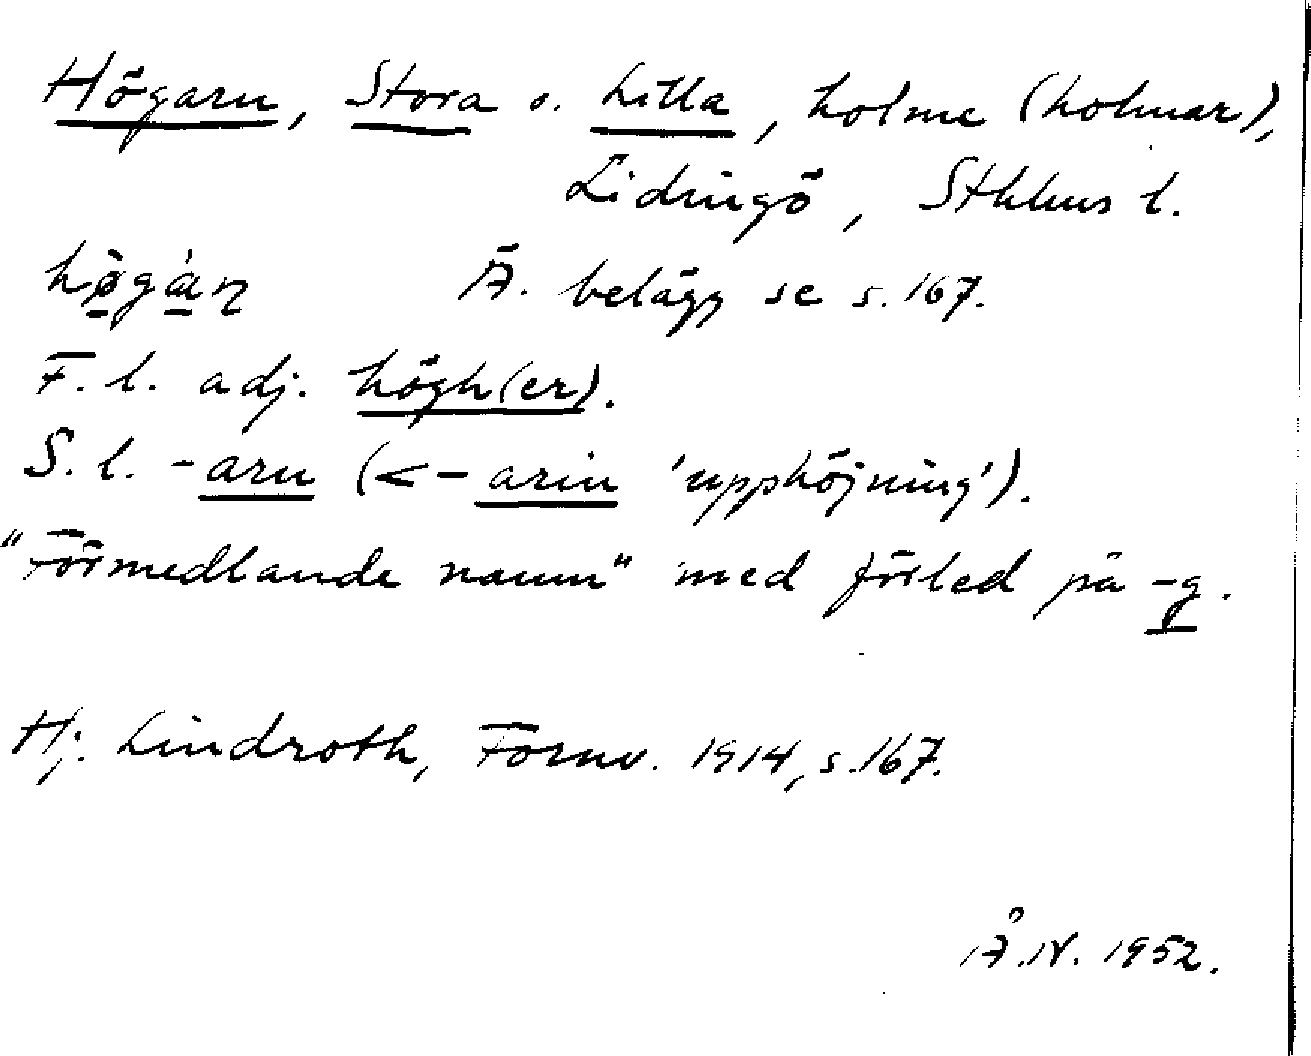 Högarn, Stora o. Lilla, holme (holmar),
Lidingö, Sthlms l.
hø̀gán Ä. belägg se s. 167.
F. l. adj. högh(er).
S. l. -arn (<-arin 'upphöjning').
"Förmedlande namn" med förled på -g.
Hj. Lindroth, Fornv. 1914, s. 167.
Å.N. 1952.